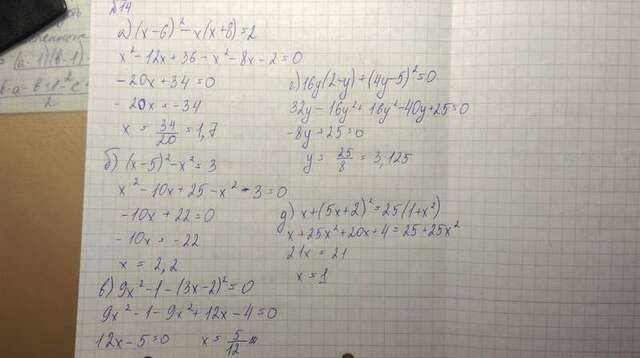 №14
а) (x-6)² - x(x+8) = 2
x² - 12x + 36 - x² - 8x - 2 = 0
-20x + 34 = 0
-20x = -34
x = 34/20 = 1,7
б) (x-5)² - x² = 3
x² - 10x + 25 - x² - 3 = 0
-10x + 22 = 0
-10x = -22
x = 2,2
в) 9x² - 1 - (3x-2)² = 0
9x² - 1 - 9x² + 12x - 4 = 0
12x - 5 = 0 x = 5/12
г) 16y(2-y) + (4y-5)² = 0
32y - 16y² = 16y² - 40y + 25 = 0
-8y + 25 = 0
y = 25/8 = 3,125
д) x + (5x+2)² = 25(1+x²)
x + 25x² + 20x + 4 = 25 + 25x²
21x = 21
x = 1
(a-1)(b-1)
2